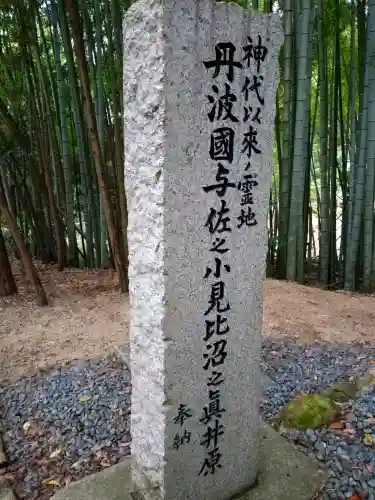 神代以來ノ霊地
丹波國与佐之小見比沼之眞井原
奉納